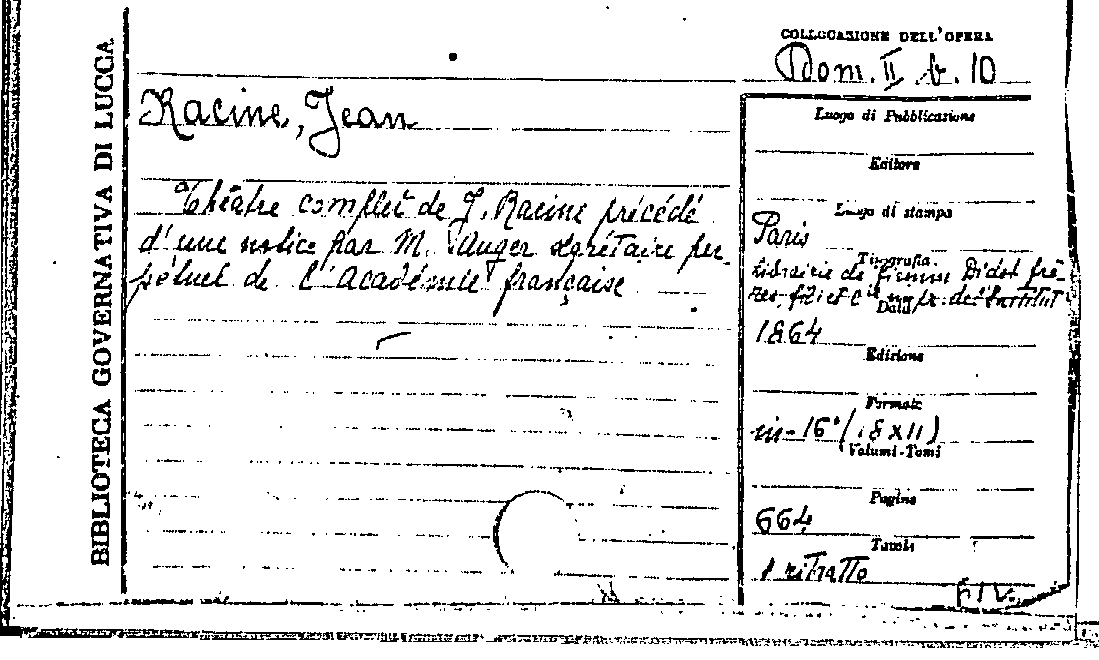 BIBLIOTECA GOVERNATIVA DI LUCCA
COLLOCAZIONE DELL'OPERA
Dom. II. b. 10
Racine, Jean
Théâtre complet de J. Racine précédé
d'une notice par M. Auger secrétaire per-
pétuel de l'Académie française
Luogo di Pubblicazione
Editore
Luogo di stampa
Paris
Tipografia
Librairie de Firmin Didot frè-
res fils et Cie impr. de l'Institut
Data
1864
Edizione
Formato
in-16° (18x11)
Volumi-Tomi
Pagine
664
Tavole
1 ritratto